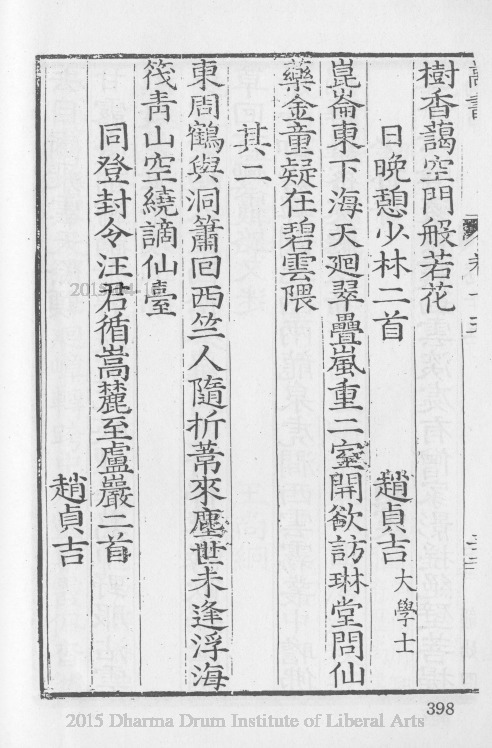 嵩書 卷十五
樹香藹空門般若花
日晚憩少林二首 趙貞吉 大學士
崑崙東下海天廻翠疊嵐重二室開欲訪琳堂問仙
藥金童疑在碧雲隈
其二
東周鶴與洞簫回西竺人隨折葦來塵世未逢浮海
筏靑山空繞謫仙臺
同登封令汪君循嵩麓至盧巖二首
趙貞吉
398
2015 Dharma Drum Institute of Liberal Arts